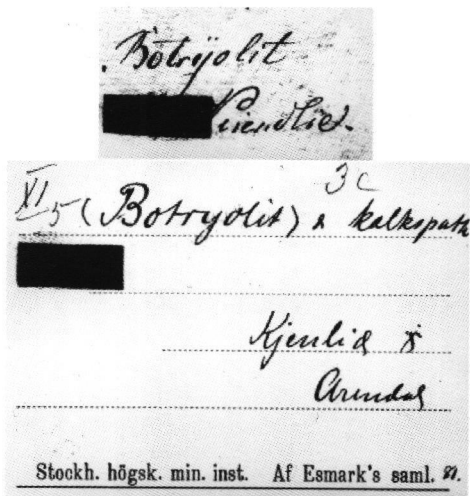 Botryolit
3c
XI 5 (Botryolit) & kalkspath
Kjenlid
Arendal
Stockh. högsk. min. inst. Af Esmark's saml.